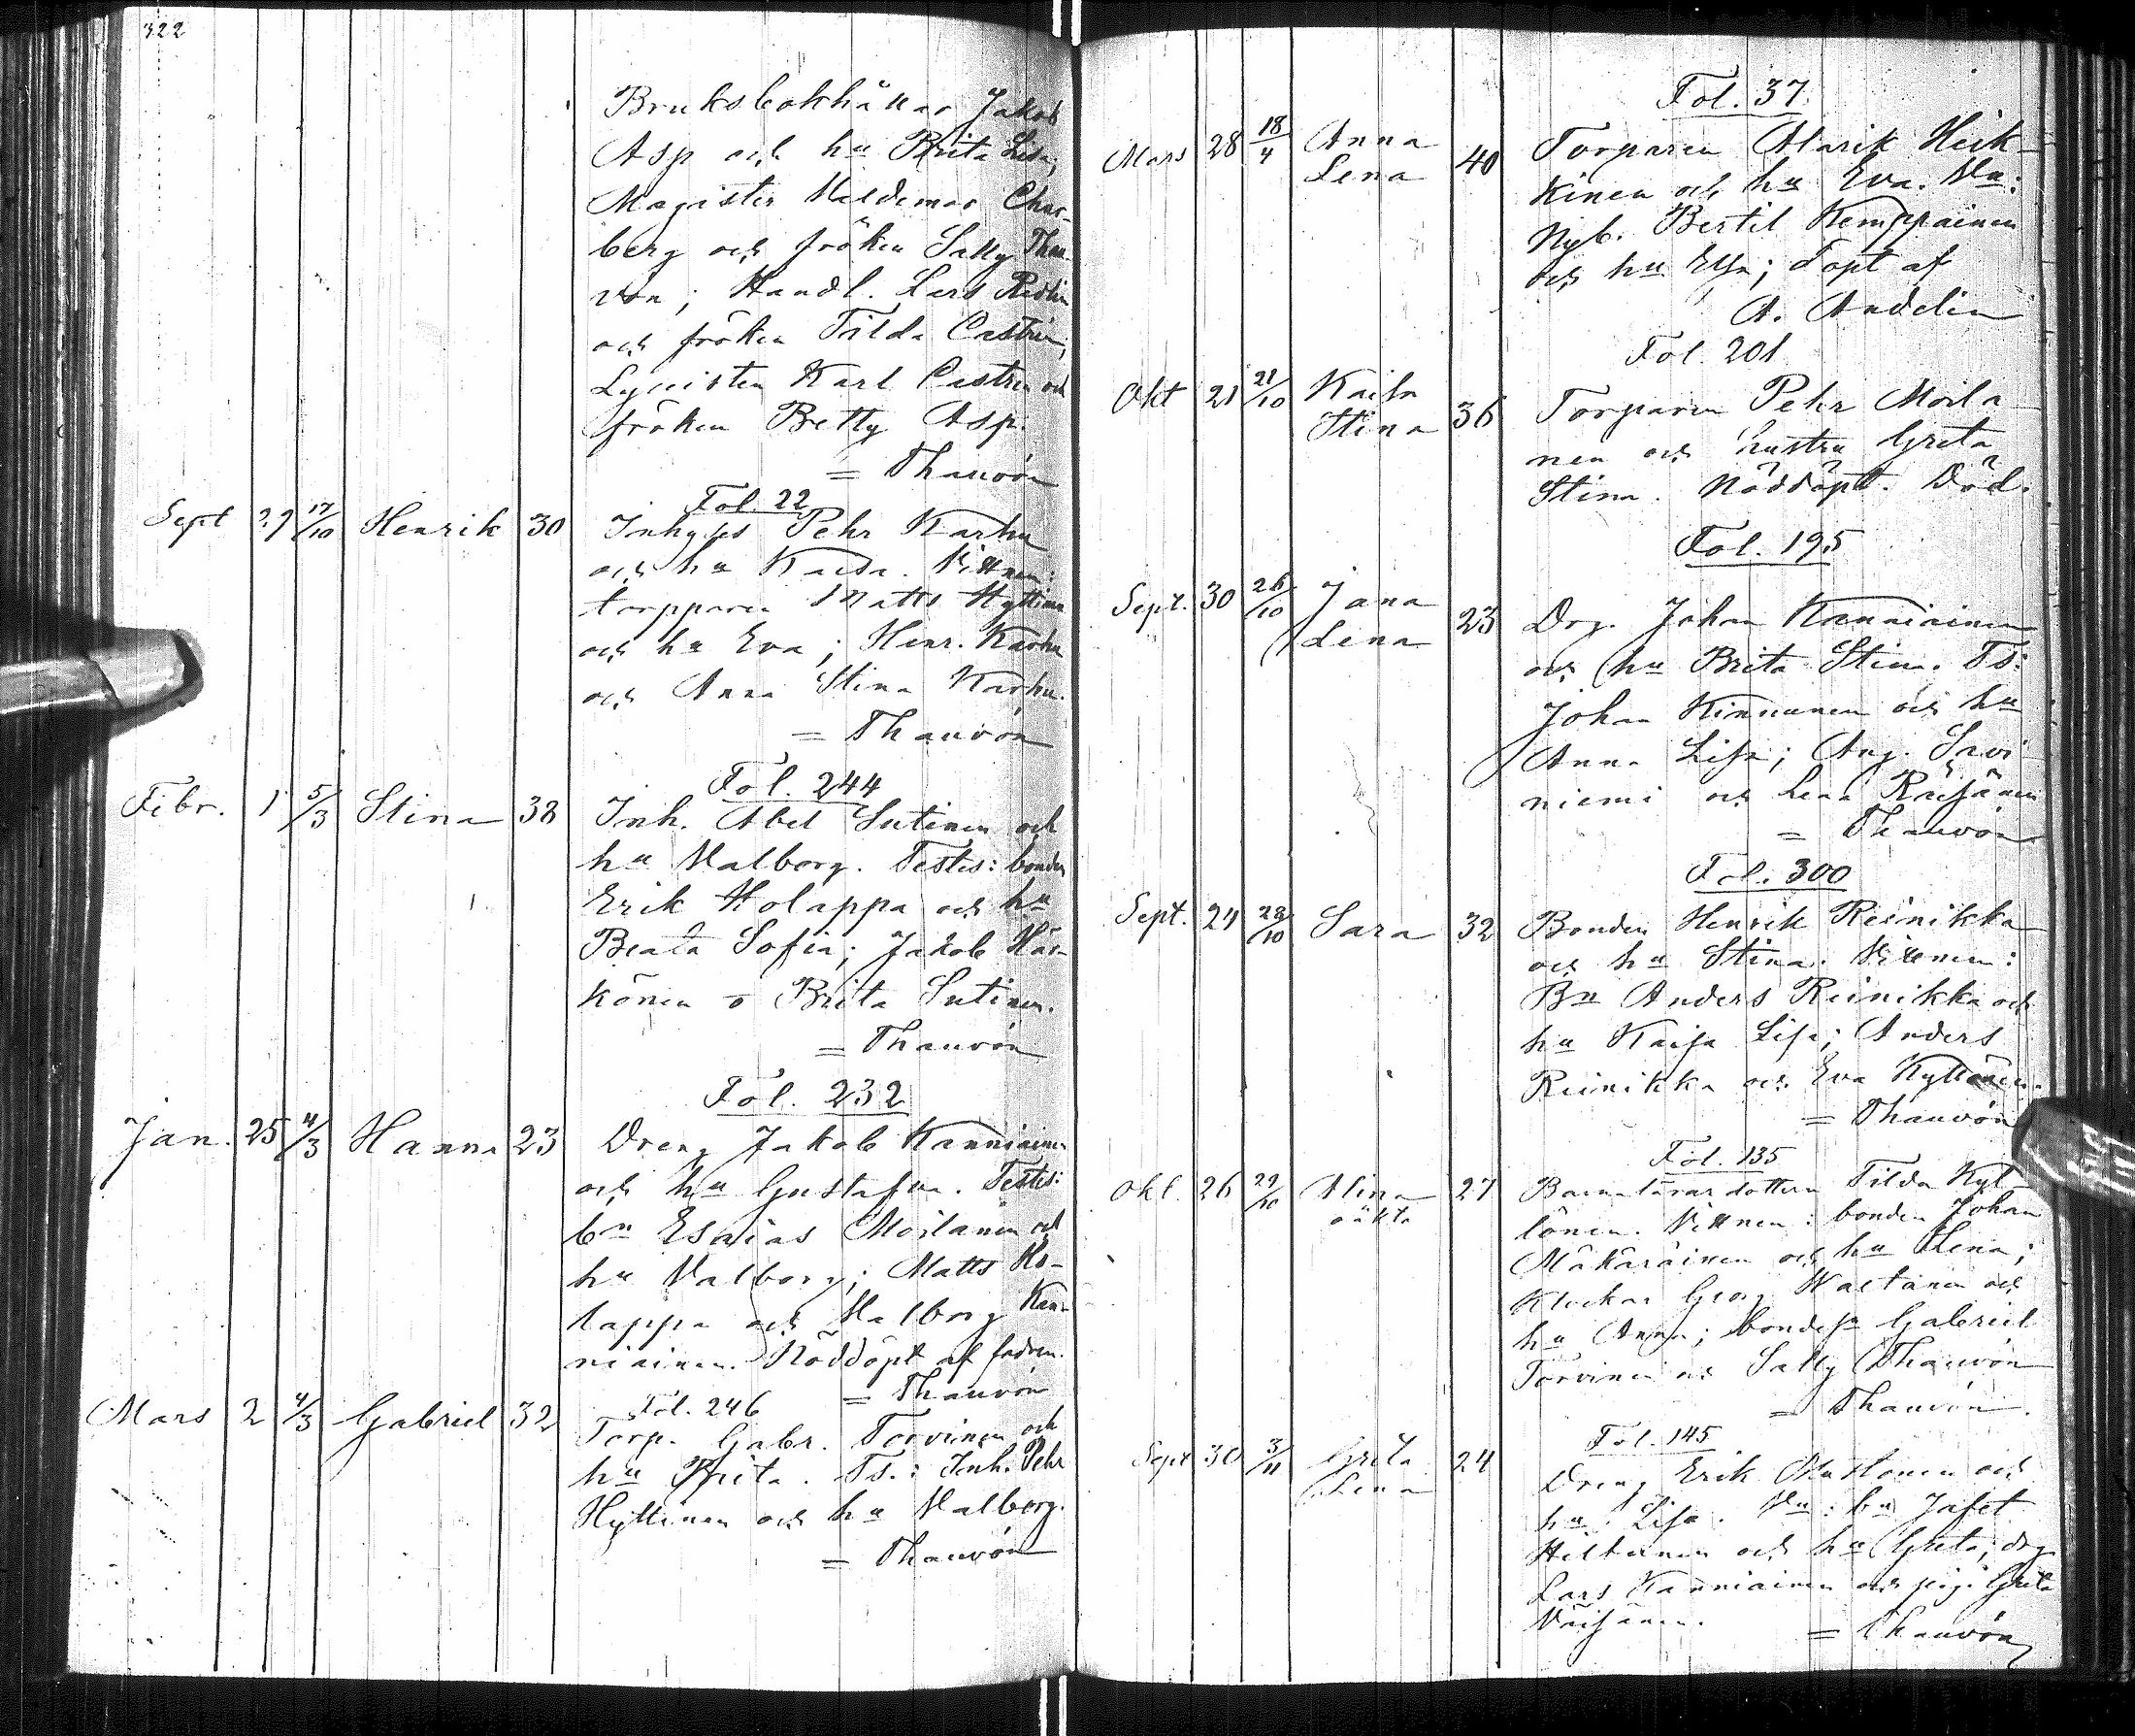 322
Bruksbokhållar Jakob
Asp och hu Brita Lisa;
Magister Valdemar Char-
berg och fröken Sally Thau-
vón; Handl. Lars
och fröken Tilda Castrén;
Lyceisten Karl Castrén och
fröken Betty Asp.
= Thauvón
Fol. 22
Sept 29 17/10 Henrik 30 Inhyses Pehr Karhu
och hu Kaisa. Vittnen:
torpparen Matts Hyttinen
och hu Eva; Henr. Karhu
och Anna Stina Karhu.
= Thauvón
Fol. 244
Febr. 1 5/3 Stina 38 Inh. Abel Sutinen och
hu Valborg. Testes: bonden
Erik Holappa och hu
Beata Sofia; Jakob Här-
könen o Brita Sutinen.
= Thauvón
Fol. 232
Jan. 25 4/3 Hanna 23 Dreng Jakob Kanniainen
och hu Gustafva. Testes:
bn Esaias Moilanen och
hu Valborg; Matts Ho-
lappa och Valborg Kan-
niainen. Nöddöpt af fadren.
= Thauvón
Fol. 246
Mars 2 4/3 Gabriel 32 Torp. Gabr. Torvinen och
hu Brita. Ts.: Inh. Pehr
Hyttinen och hu Valborg.
= Thauvón
Fol. 37
Mars 28 18/4 Anna 40 Torparen Alarik Heik-
Lena kinen och hu Eva. Vn:
Nyb. Bertil Kemppainen
och hu Elsa; döpt af
A. Andelin
Fol. 201
Okt 21 21/10 Kaisa 36 Torparen Pehr Moila-
Stina nen och hustru Greta
Stina. Nöddöpt. Död.
Fol. 195
Sept. 30 26/10 Jana 23 Drg. Johan Kanniainen
Lena och hu Brita Stina. Ts:
Johan Kinnunen och hu
Anna Lisa; Aug. Savi-
niemi och Lena Räisänen
= Thauvón
Fol. 300
Sept. 24 28/10 Sara 32 Bonden Henrik Reinikka
och hu Stina. Vittnen:
Bn Anders Reinikka och
hu Kaisa Lisa; Anders
Reinikka och Eva Kyllönen.
= Thauvón
Fol. 135
Okt. 26 29/10 Alina 27 Barnalärardottern Tilda Kyl-
oäkta lönen. Vittnen: bonden Johan
Mäkäräinen och hu Lena;
Klockar Georg Waltanen och
hu Anna; bondes. Gabriel
Torvinen och Sally Thauvón
= Thauvón.
Fol. 145
Sept 30 3/11 Greta 24 Dreng Erik Mustonen och
Lena hu Lisa. Vn: bn Jafet
Hiltunen och hu Greta; drg
Lars Kanniainen och pig. Greta
Väisänen.
= Thauvón